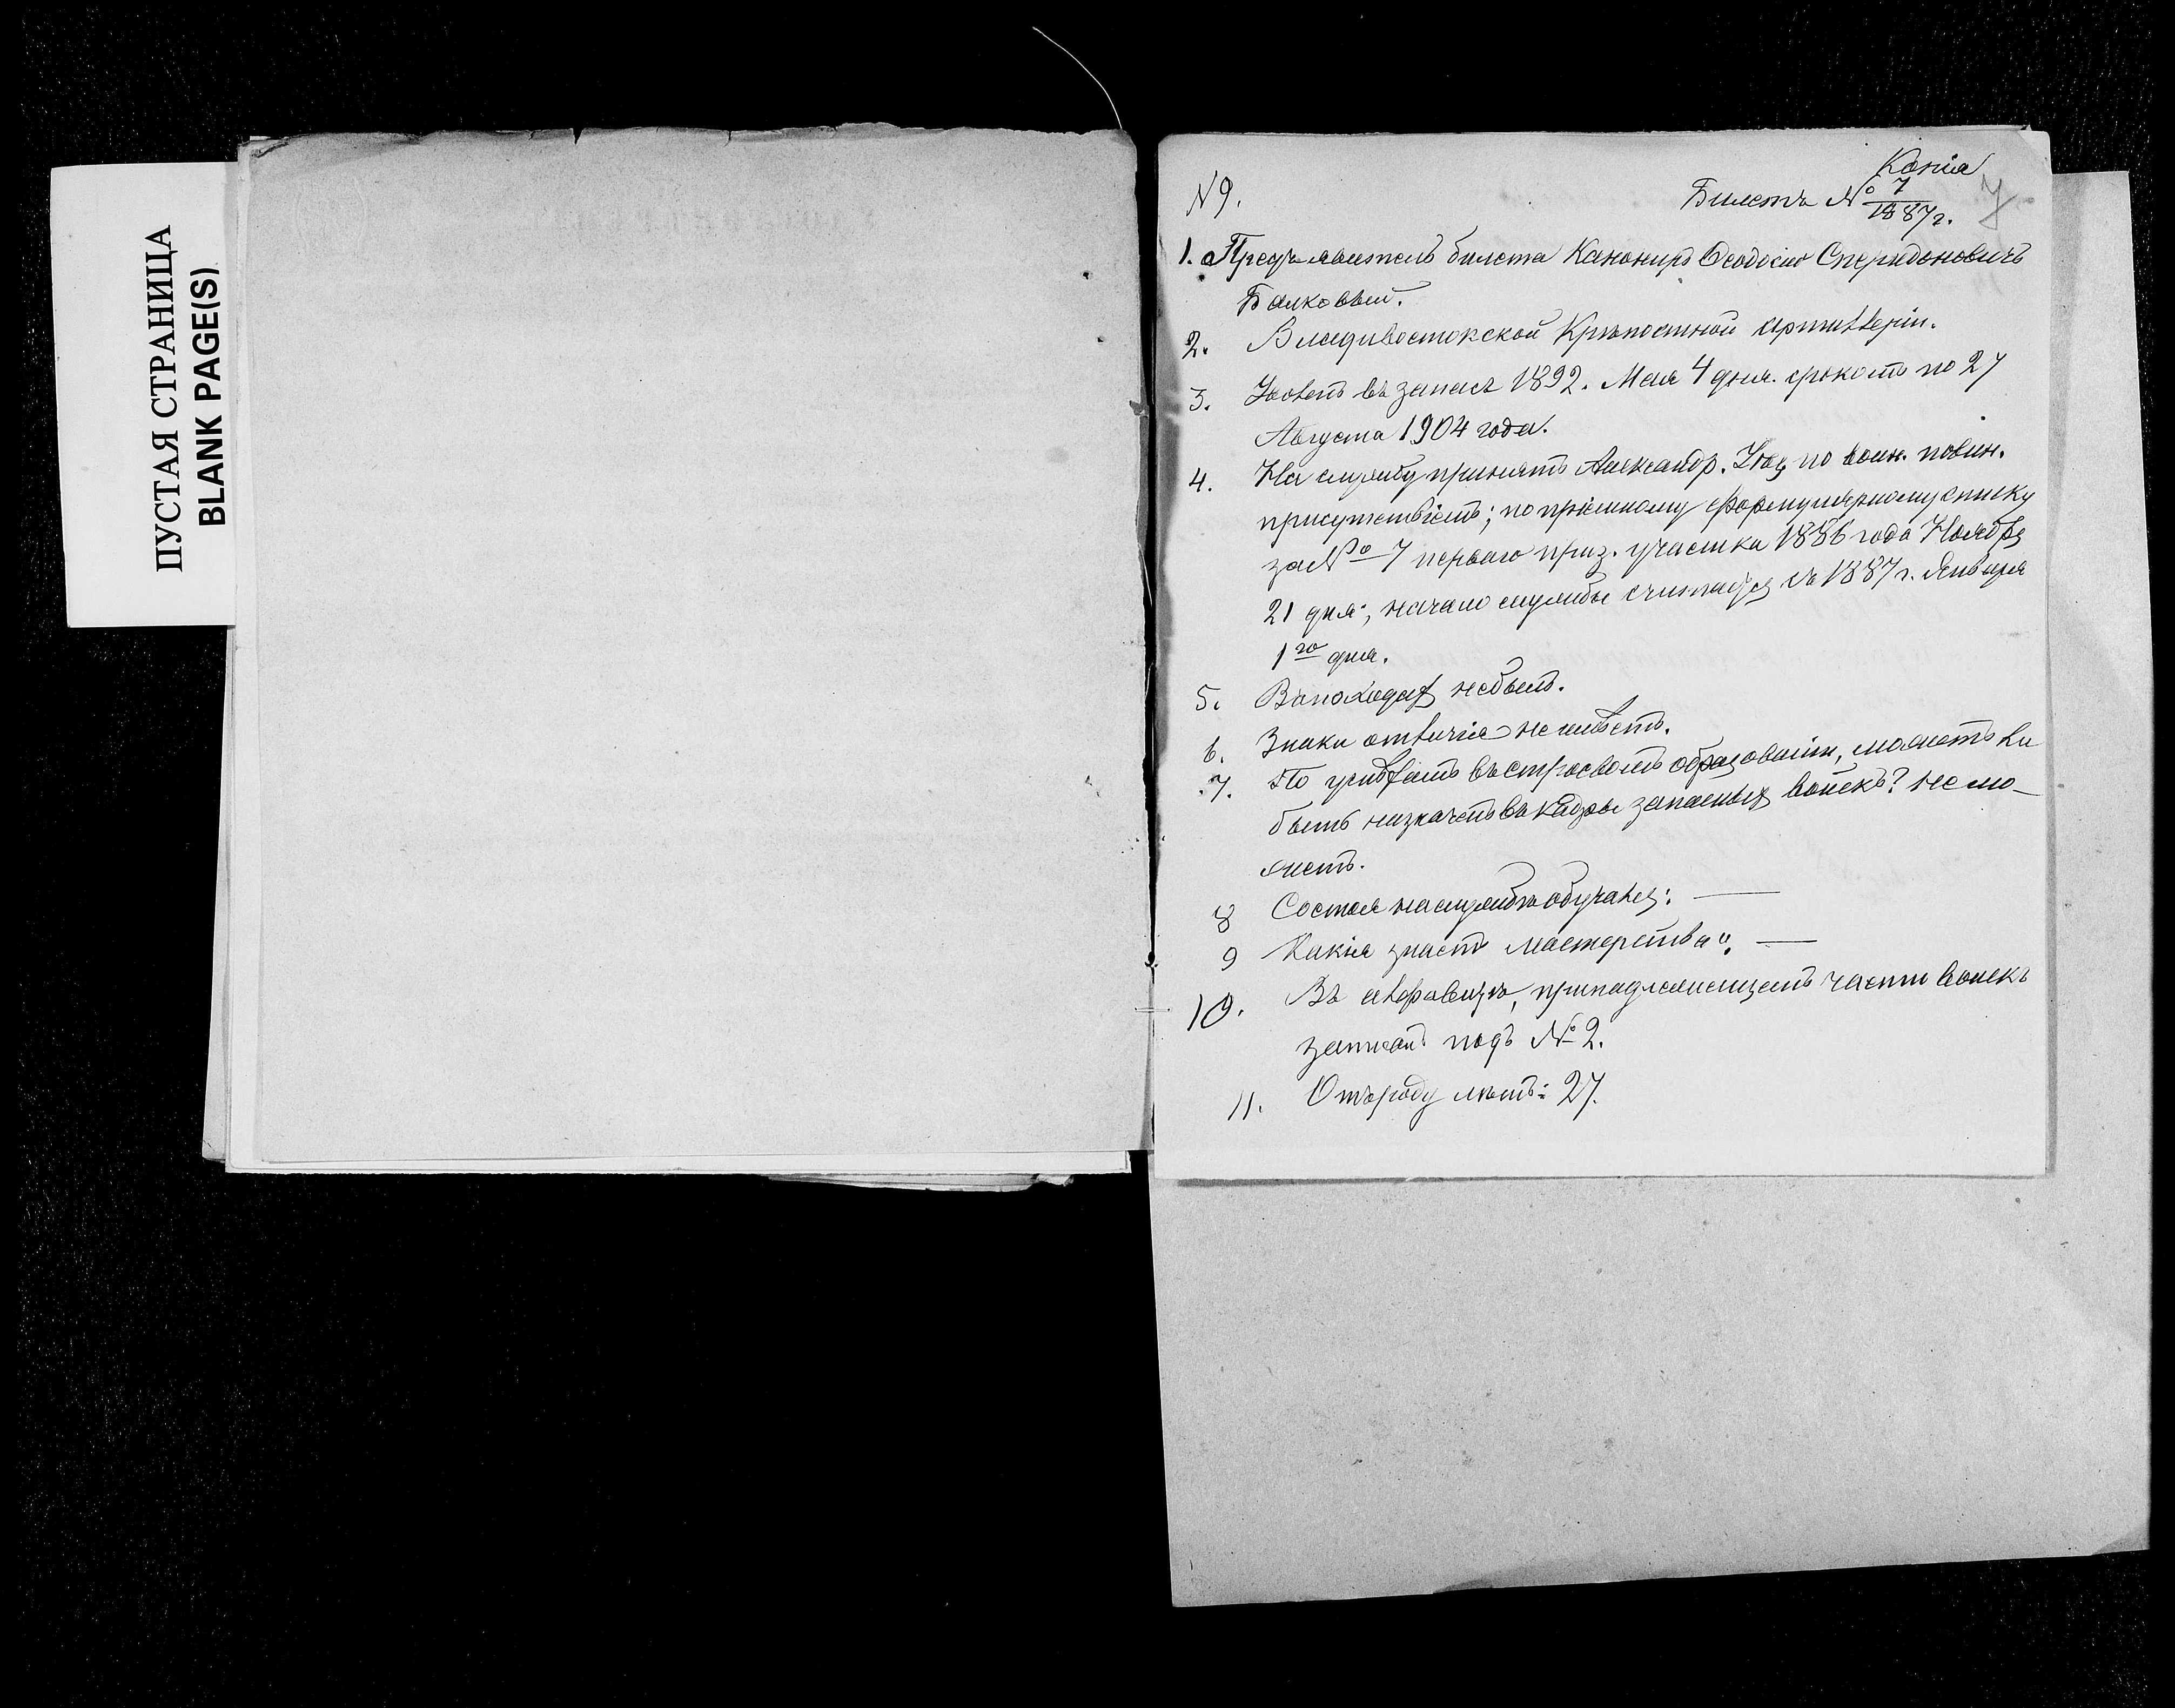 ПУСТАЯ СТРАНИЦА
BLANK PAGE(S)
Копія
N 9.
Билетъ № 7
1887 г.
7
1. Предъявитель билета Канониръ Ѳеодосій Спиридоновичъ
Балковый.
2. Владивостокской Крѣпостной артиллеріи.
3. Уволенъ въ запасъ 1892. Мая 4 дня. срокомъ по 27
Августа 1904 года.
4. На службу принятъ Александр. Уѣз. по воин. повин.
присутствіемъ; по пріемному формулярному списку
за № 7 перваго приз. участка 1886 года Ноября
21 дня; начало службы считается съ 1887 г. Января
1го дня.
5. Въ походах не былъ.
6. Знаки отличія не имѣетъ.
7. По успѣхамъ въ строевомъ образованіи, можетъ ли
быть назначенъ въ кадры запасных войскъ? не мо-
жетъ.
8 Состоя на службѣ обучался: —
9 Какія знаетъ мастерства „ —
10. Въ алфавитѣ, принадлежащемъ части войскъ
записан подъ № 2.
11. Отъ роду лѣтъ: 27.